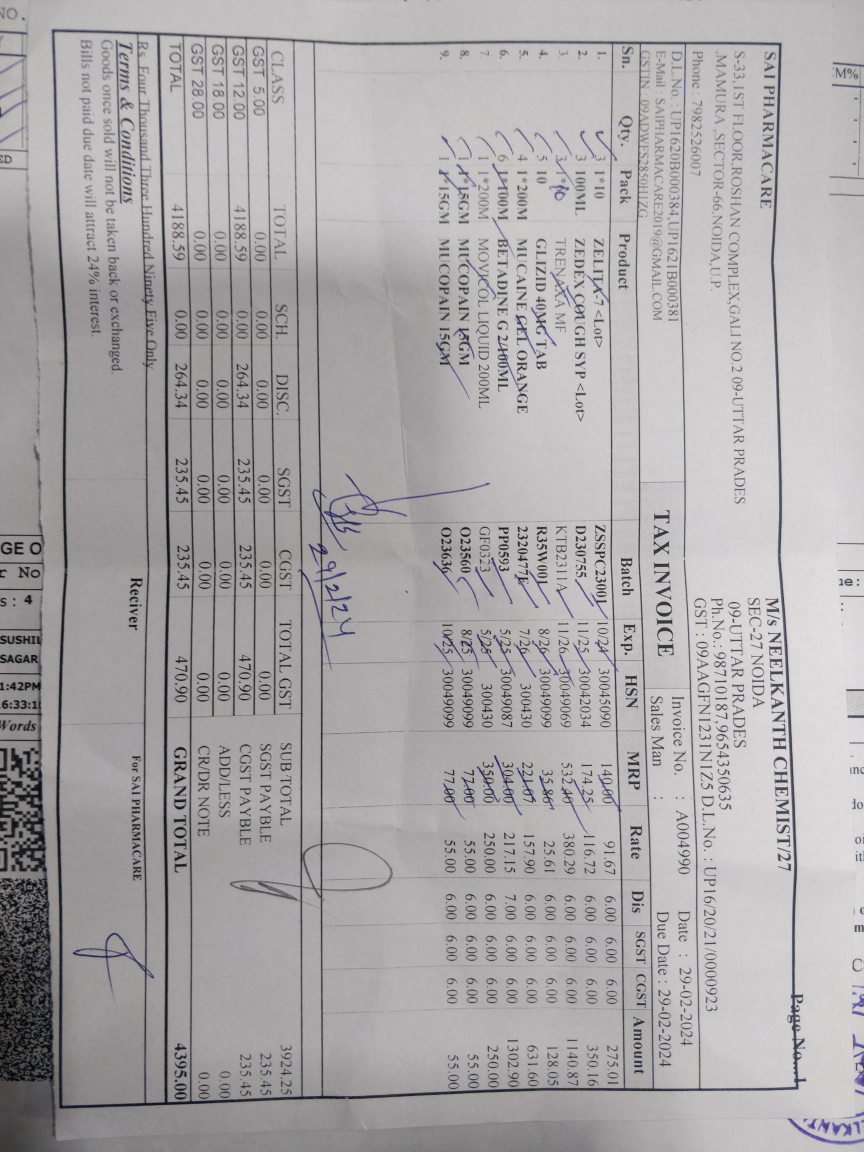 Page No...1
SAI PHARMACARE
S-33,1ST FLOOR,ROSHAN COMPLEX,GALI NO.2 09-UTTAR PRADES
,MAMURA ,SECTOR-66,NOIDA,U.P.
Phone : 7982526007
D.L.No. : UP1620B000384,UP1621B000381
E-Mail : SAIPHARMACARE2019@GMAIL.COM
GSTIN : 09ADWFS2850H1ZG
M/s NEELKANTH CHEMIST/27
SEC-27 NOIDA
09-UTTAR PRADES
Ph.No.: 98710187,9654350635
GST : 09AAGFN1231N1Z5 D.L.No. : UP16/20/21/0000923
TAX INVOICE
Invoice No. : A004990 Date : 29-02-2024
Sales Man : Due Date : 29-02-2024
Sn. Qty. Pack Product Batch Exp. HSN MRP Rate Dis SGST CGST Amount
1. 3 1*10 ZELITA-7 <Lot> ZSSPC23001 10/24 30045090 140.00 91.67 6.00 6.00 6.00 275.01
2. 3 100ML ZEDEX COUGH SYP <Lot> D230755 11/25 30042034 174.25 116.72 6.00 6.00 6.00 350.16
3. 3 1*10 TRENAXA MF KTB2311A 11/26 30049069 532.40 380.29 6.00 6.00 6.00 1140.87
4. 5 10 GLIZID 40MG TAB R35W001 8/26 30049099 35.86 25.61 6.00 6.00 6.00 128.05
5. 4 1*200M MUCAINE GEL ORANGE 2320477E 7/26 300430 221.07 157.90 6.00 6.00 6.00 631.60
6. 6 1*100M BETADINE G 2/100ML PP0593 5/25 30049087 304.00 217.15 7.00 6.00 6.00 1302.90
7. 1 1*200M MOVICOL LIQUID 200ML GF0323 5/25 300430 350.00 250.00 6.00 6.00 6.00 250.00
8. 1 1*15GM MUCOPAIN 15GM O23560 8/25 30049099 77.00 55.00 6.00 6.00 6.00 55.00
9. 1 1*15GM MUCOPAIN 15GM O23636 10/25 30049099 77.00 55.00 6.00 6.00 6.00 55.00
29/2/24
CLASS TOTAL SCH. DISC. SGST CGST TOTAL GST
GST 5.00 0.00 0.00 0.00 0.00 0.00 0.00
GST 12.00 4188.59 0.00 264.34 235.45 235.45 470.90
GST 18.00 0.00 0.00 0.00 0.00 0.00 0.00
GST 28.00 0.00 0.00 0.00 0.00 0.00 0.00
TOTAL 4188.59 0.00 264.34 235.45 235.45 470.90
SUB TOTAL 3924.25
SGST PAYBLE 235.45
CGST PAYBLE 235.45
ADD/LESS 0.00
CR/DR NOTE 0.00
GRAND TOTAL 4395.00
Rs. Four Thousand Three Hundred Ninety Five Only
Terms & Conditions
Goods once sold will not be taken back or exchanged.
Bills not paid due date will attract 24% interest.
Reciver
For SAI PHARMACARE